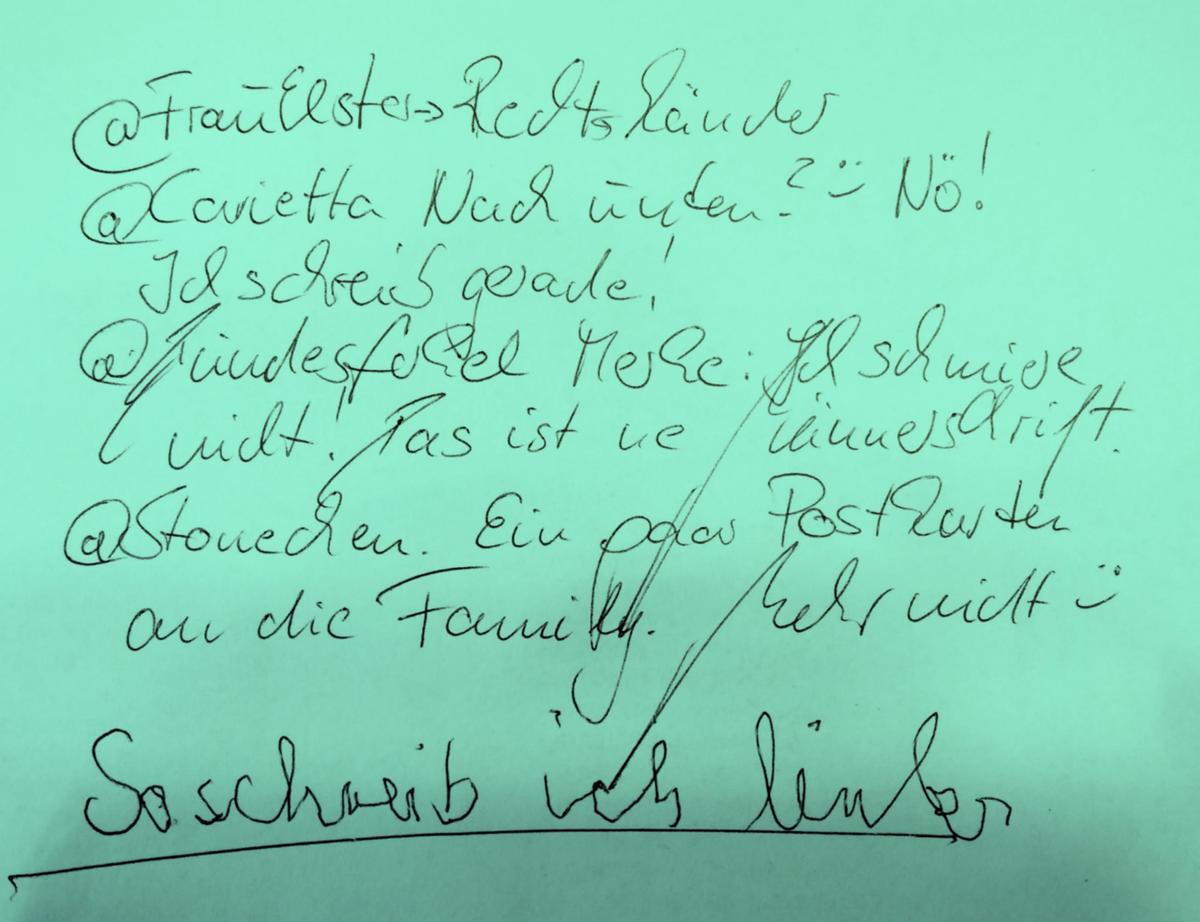 @FrauElster → Rechtshänder
@Carietta Nach unten? :) Nö!
Ich schreib gerade!
@Hundesfockel Merke: Ich schmiere
nicht! Das ist ne Männerschrift.
@Stonechen. Ein paar Postkarten
an die Family. Mehr nicht :)
So schreib ich links